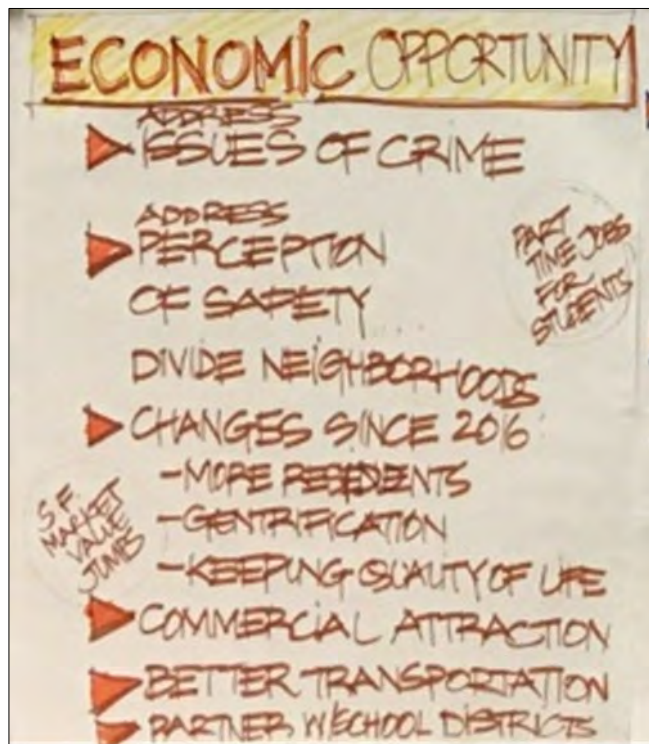 ECONOMIC OPPORTUNITY
ADDRESS
ISSUES OF CRIME
ADDRESS
PERCEPTION
OF SAFETY
PART
TIME JOBS
FOR
STUDENTS
DIVIDE NEIGHBORHOODS
CHANGES SINCE 2016
-MORE RESIDENTS
-GENTRIFICATION
-KEEPING QUALITY OF LIFE
S.F.
MARKET
VALUE
JUMBS
COMMERCIAL ATTRACTION
BETTER TRANSPORTATION
PARTNER W/SCHOOL DISTRICTS